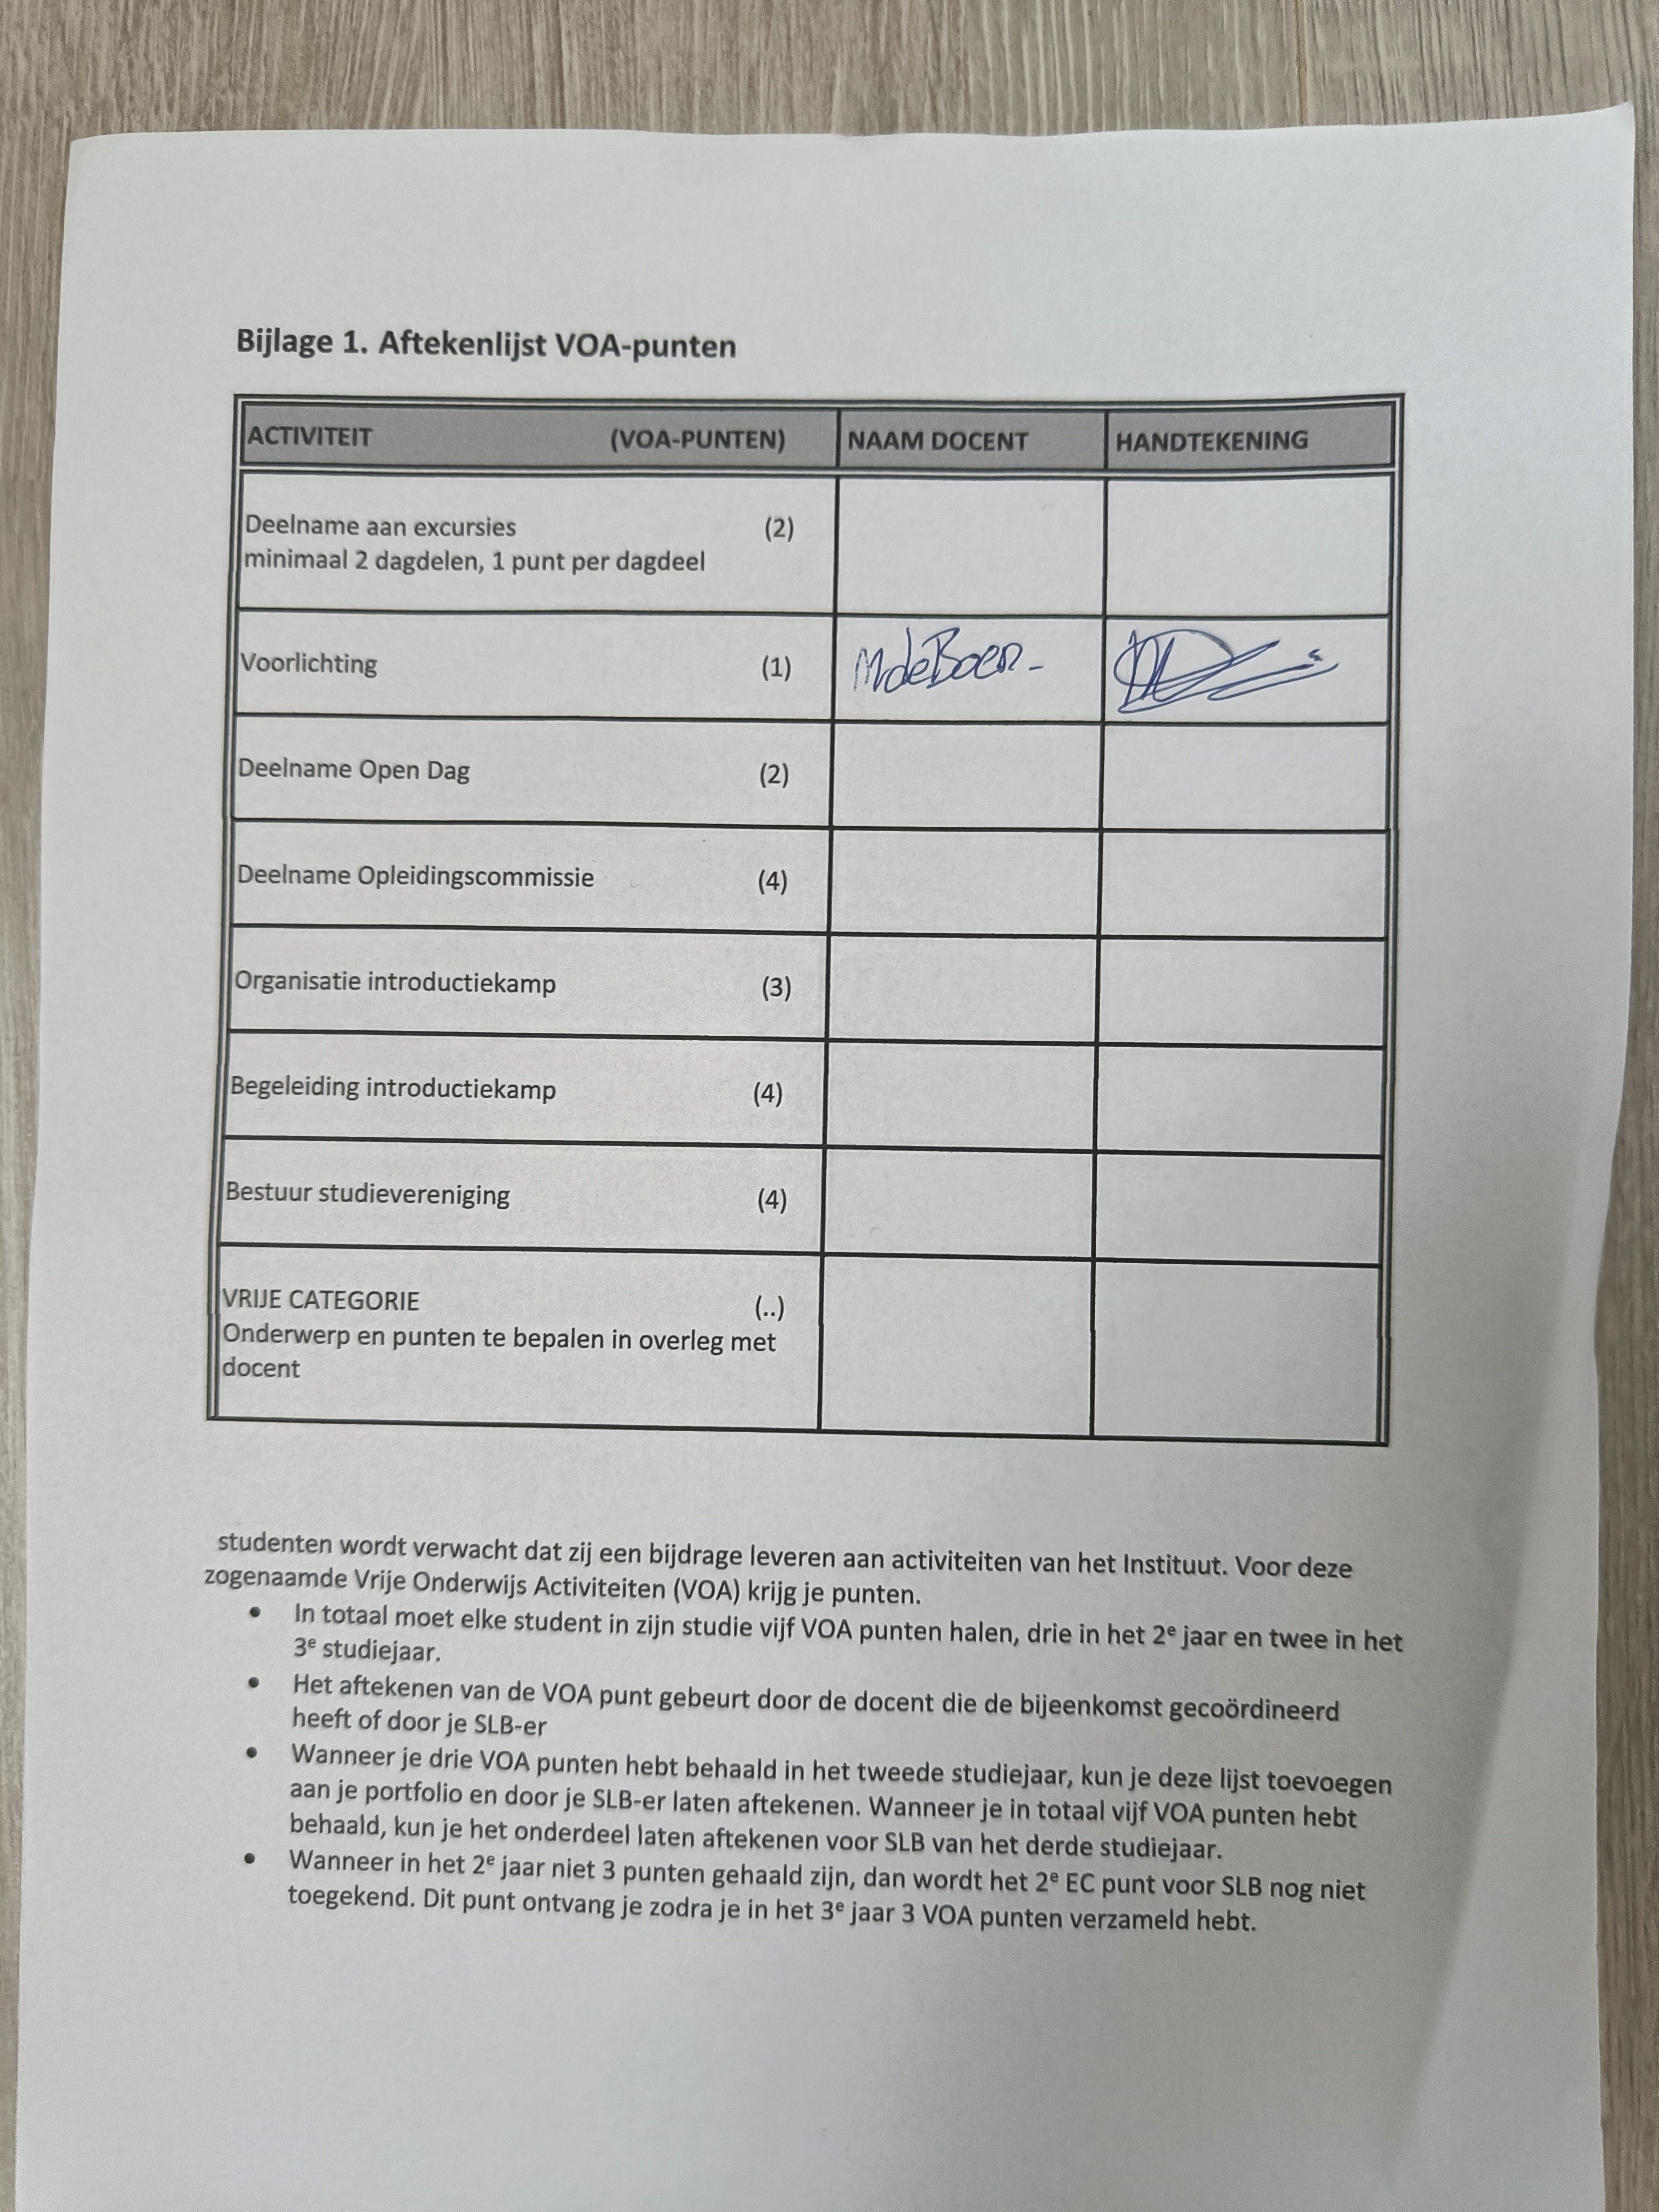 Bijlage 1. Aftekenlijst VOA-punten
ACTIVITEIT (VOA-PUNTEN) NAAM DOCENT HANDTEKENING
Deelname aan excursies (2)
minimaal 2 dagdelen, 1 punt per dagdeel
Voorlichting (1) M de Boer
Deelname Open Dag (2)
Deelname Opleidingscommissie (4)
Organisatie introductiekamp (3)
Begeleiding introductiekamp (4)
Bestuur studievereniging (4)
VRIJE CATEGORIE (..)
Onderwerp en punten te bepalen in overleg met
docent
studenten wordt verwacht dat zij een bijdrage leveren aan activiteiten van het Instituut. Voor deze
zogenaamde Vrije Onderwijs Activiteiten (VOA) krijg je punten.
• In totaal moet elke student in zijn studie vijf VOA punten halen, drie in het 2e jaar en twee in het
3e studiejaar.
• Het aftekenen van de VOA punt gebeurt door de docent die de bijeenkomst gecoördineerd
heeft of door je SLB-er
• Wanneer je drie VOA punten hebt behaald in het tweede studiejaar, kun je deze lijst toevoegen
aan je portfolio en door je SLB-er laten aftekenen. Wanneer je in totaal vijf VOA punten hebt
behaald, kun je het onderdeel laten aftekenen voor SLB van het derde studiejaar.
• Wanneer in het 2e jaar niet 3 punten gehaald zijn, dan wordt het 2e EC punt voor SLB nog niet
toegekend. Dit punt ontvang je zodra je in het 3e jaar 3 VOA punten verzameld hebt.